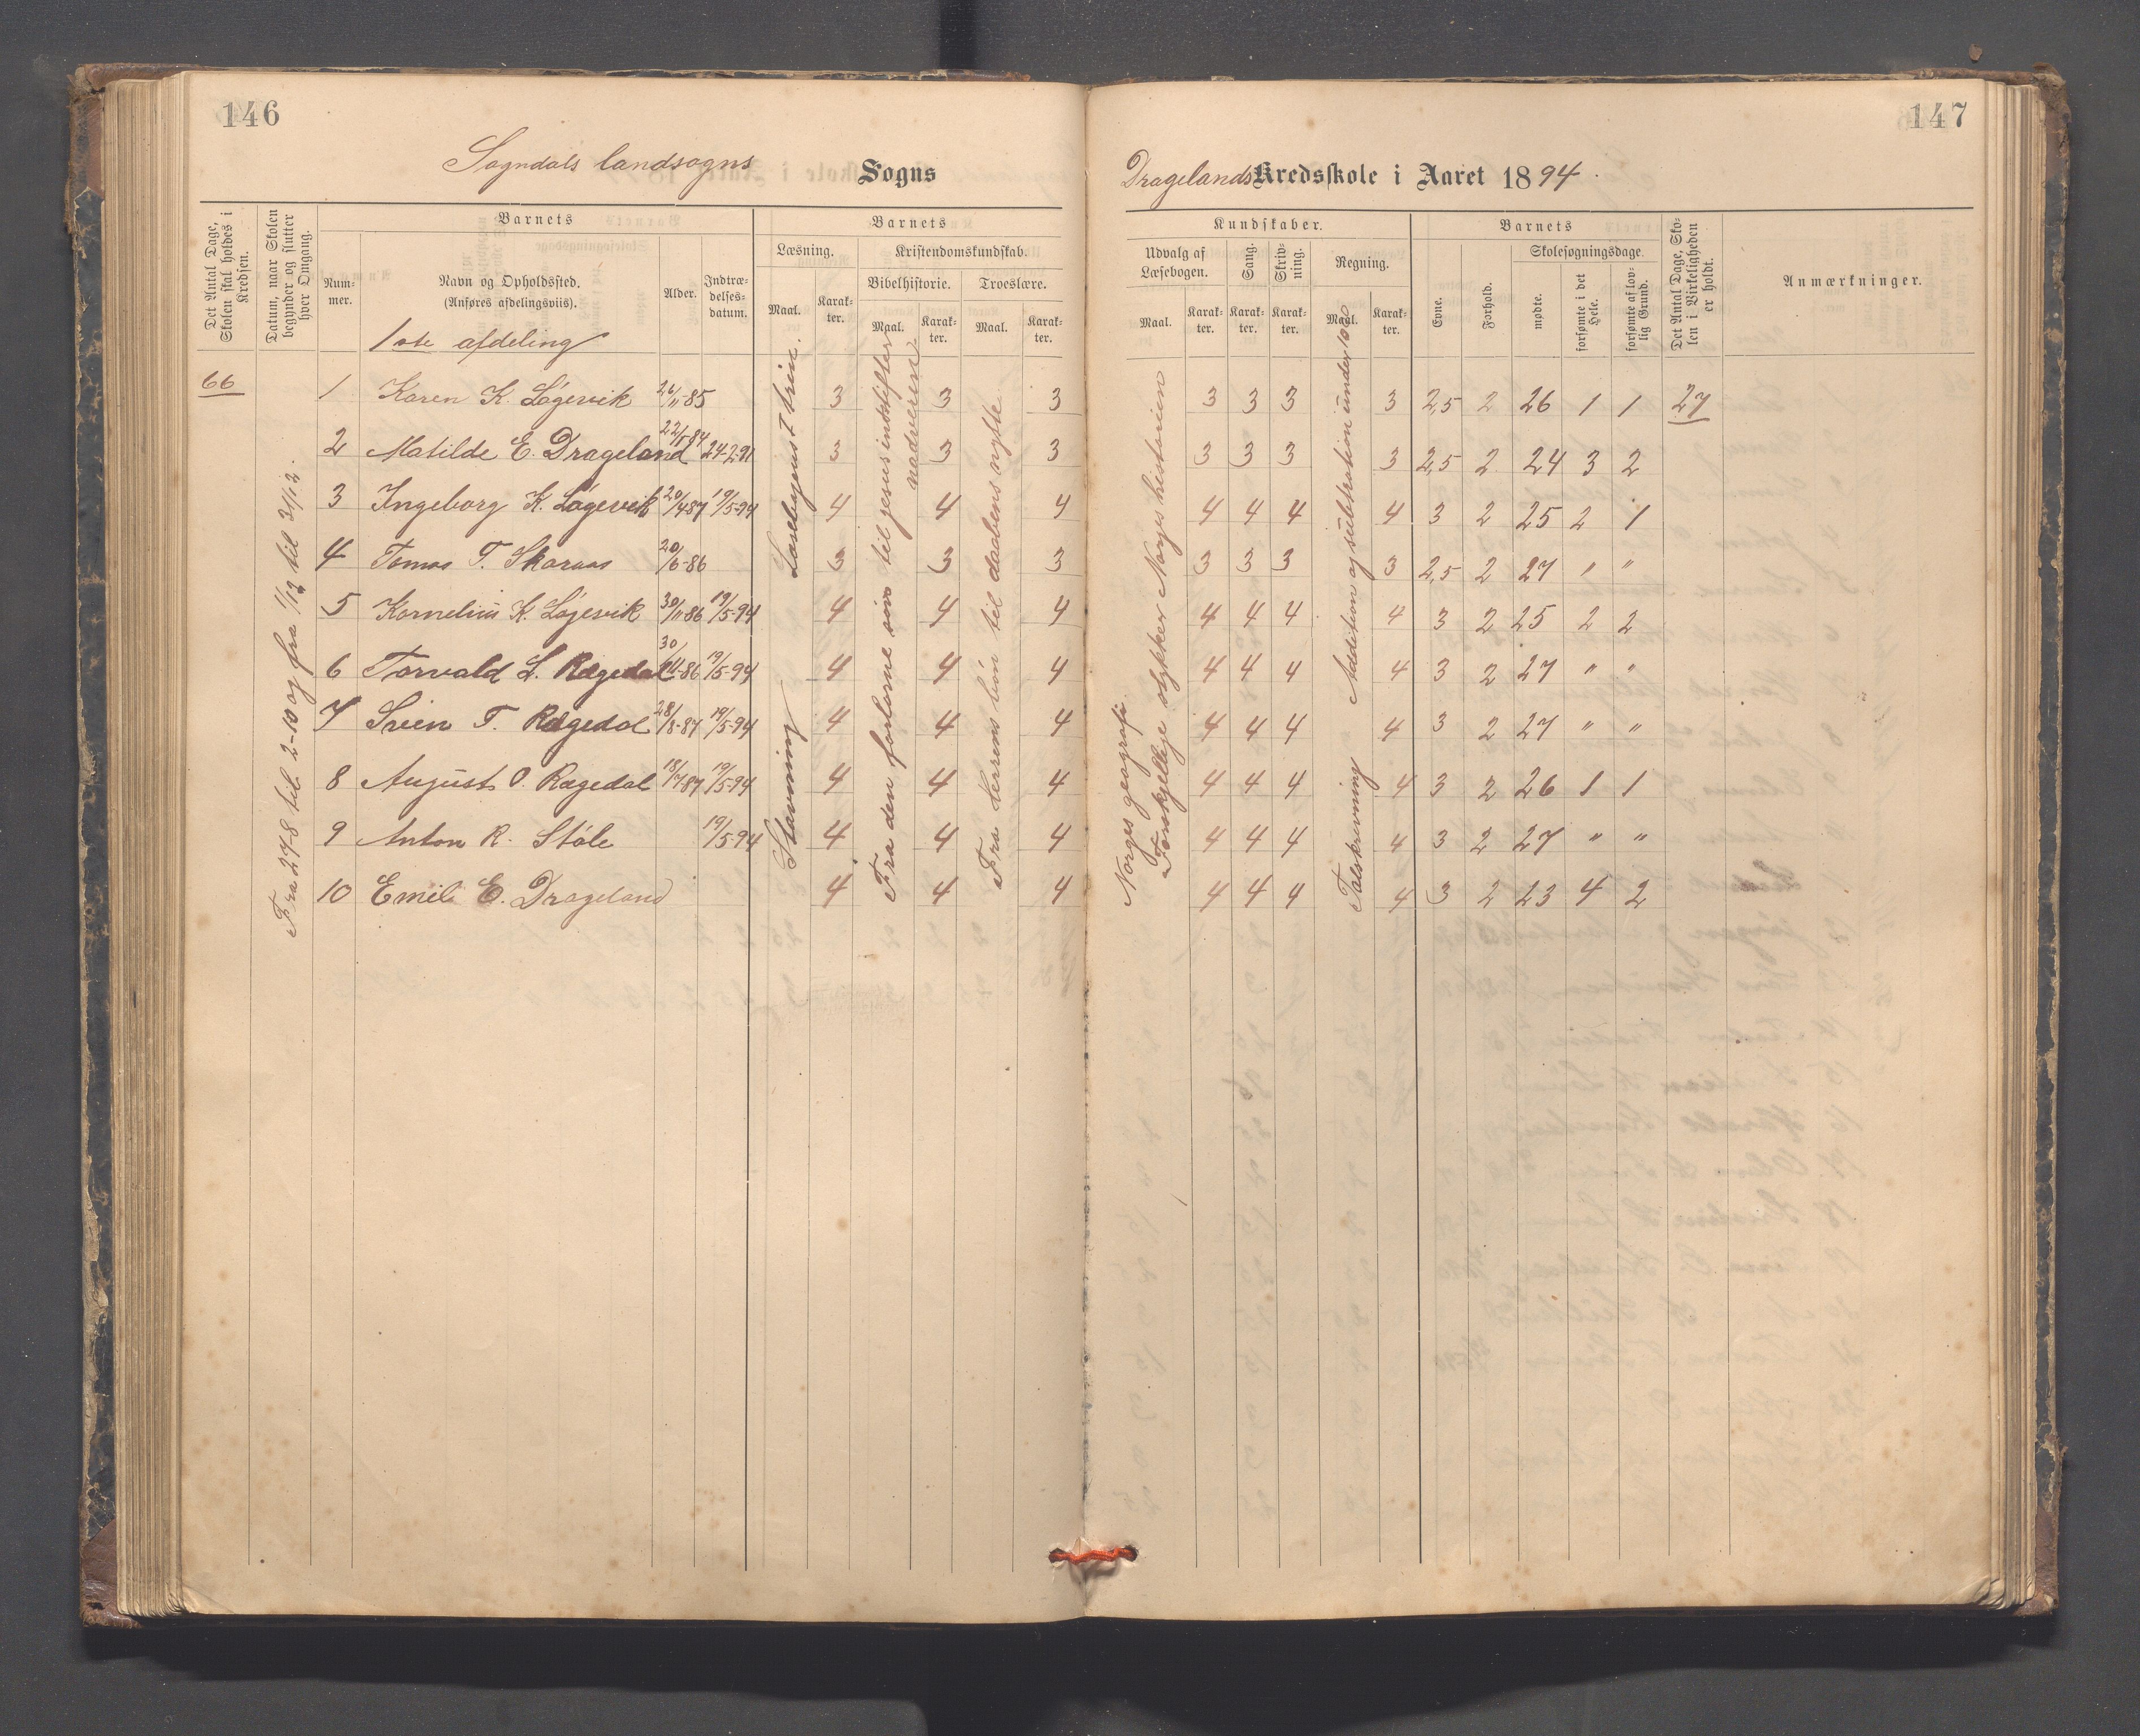 146
147
Sogndals landsogns Sogns
Dragelands Kredsskole i Aaret 1894.
Det Antal Dage, Skolen skal holdes i Kredsen.
Datum, naar Skolen begynder og slutter hver Omgang.
Barnets
Num-mer.
Navn og Opholdssted.
(Anføres afdelingsviis).
Alder.
Indtræ-delses-datum.
Barnets
Læsning.
Maal.
Karak-ter.
Kristendomskundskab.
Bibelhistorie.
Maal.
Karak-ter.
Troeslære.
Maal.
Karak-ter.
Kundskaber.
Udvalg af Læsebogen.
Maal.
Karak-ter.
Sang.
Karak-ter.
Skriv-ning.
Karak-ter.
Regning.
Maal.
Karak-ter.
Barnets
Evne.
Forhold.
Skolesøgningsdage.
mødte.
forsømte i det Hele.
forsømte af lov-lig Grund.
Det Antal Dage, Sko-len i Virkeligheden er holdt.
Anmærkninger.
1ste afdeling
66
Fra 27-8 til 2-10 og fra 1/12 til 31/12.
Stavning Læsebogens 1 trin.
Fra den forlorne søn til jesus indstifter nadveren
Fra herrens bøn til daabens nytte
Norges geografi.
Forskjellige stykker Norges historien
Talskrivning Addition og subtration under 1000
1 Karen K. Løgevik 26/11-85 3 3 3 3 3 3 3 2,5 2 26 1 1 27
2 Matilde E. Drageland 22/1-84 24-2-91 3 3 3 3 3 3 3 2,5 2 24 3 2
3 Ingeborg K. Løgevik 20/4 87 19/5-94 4 4 4 4 4 4 4 3 2 25 2 1
4 Tomas T. Skaraas 20/6-86 3 3 3 3 3 3 3 2,5 2 27 " "
5 Kornelius K. Løgevik 30/11 86 19/5-94 4 4 4 4 4 4 4 3 2 25 2 2
6 Torvald L. Rægedal 30/11-86 19/5-94 4 4 4 4 4 4 4 3 2 27 " "
7 Svein T. Rægedal 28/8-87 19/5-94 4 4 4 4 4 4 4 3 2 27 " "
8 August O. Rægedal 18/7 87 19/5-94 4 4 4 4 4 4 4 3 2 26 1 1
9 Anton R. Støle 19/5-94 4 4 4 4 4 4 4 3 2 27 " "
10 Emil E. Drageland 4 4 4 4 4 4 4 3 2 23 4 2